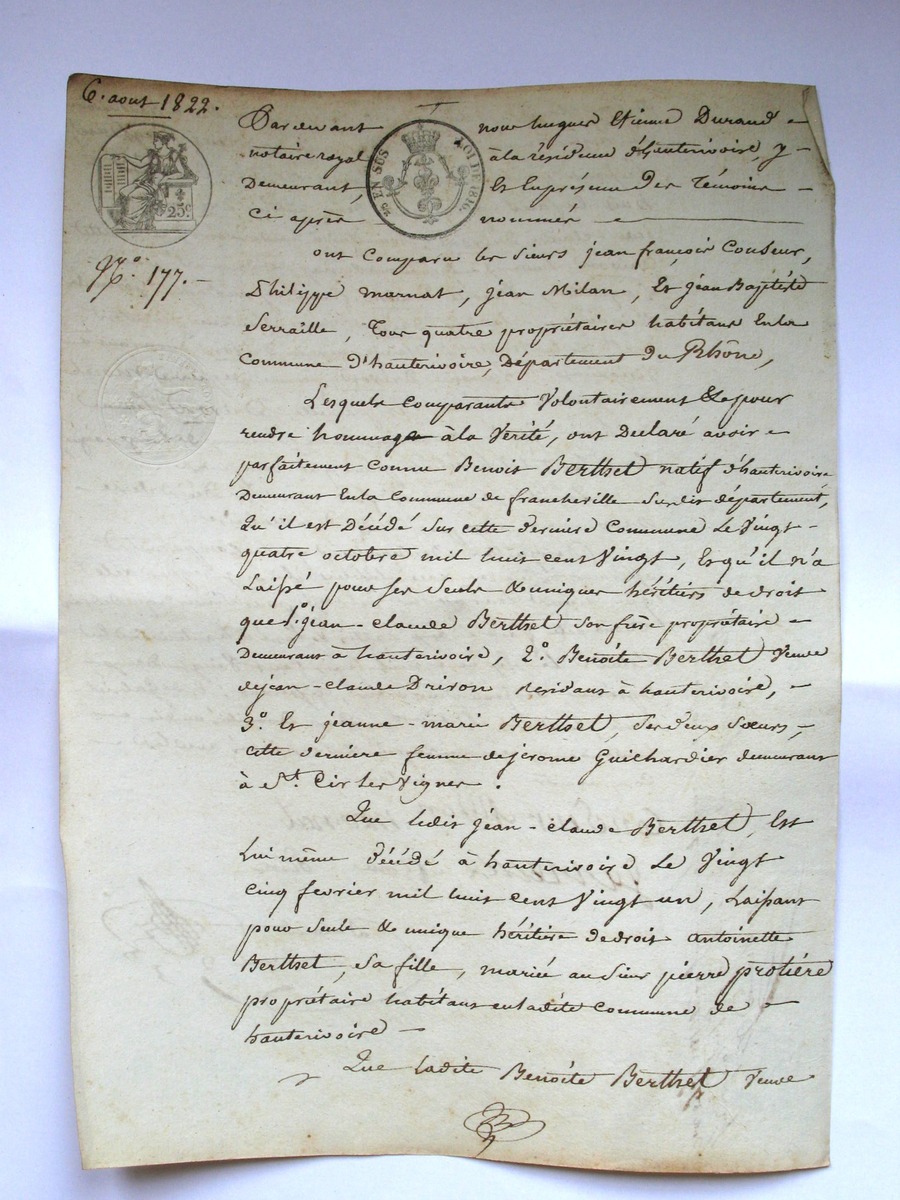 6. aout 1822.
Pardevant nous hugues Etienne Durand
notaire royal à la résidence d'hauterivoire, y
Demeurant, Et En présence Des Témoins
Ci après nommés
25 EN SUS LOI DE 1816.
25c
N.o 177.
ont Comparu les Sieurs jean françois Couseur,
Philippe marnat, jean Milan, Et jean Baptiste
Serraille, Tous quatre propriétaires habitans En la
Commune d'hauterivoire, Département Du Rhône,
Lesquels Comparants Volontairement & pour
rendre hommage à la Vérité, ont Déclaré avoir
parfaitement connu Benoit Berthet natif d'hauterivoire
Demeurant En la Commune de francheville susdit département,
Qu'il est Décédé sur cette derniere Commune Le Vingt
quatre octobre mil huit cent Vingt, Et qu'il n'a
Laissé pour ses seuls & uniques héritiers de droit
que 1.o jean-claude Berthet son frère propriétaire
Demeurant à hauterivoire, 2.o Benoite Berthet Veuve
de jean-claude Drivon Residant à hauterivoire,
3.o Et jeanne-marie Berthet, ses deux sœurs,
cette dernière femme de jerome Guichardier demeurant
à St. Cir les Vignes.
Que ledit jean-claude Berthet, Est
Lui même décédé à hauterivoire Le Vingt
cinq fevrier mil huit cent Vingt un, Laissant
pour seule & unique héritière de droit antoinette
Berthet, sa fille, mariée au sieur pierre protière
propriétaire habitant en ladite Commune de
hauterivoire
Que Ladite Benoite Berthet Veuve